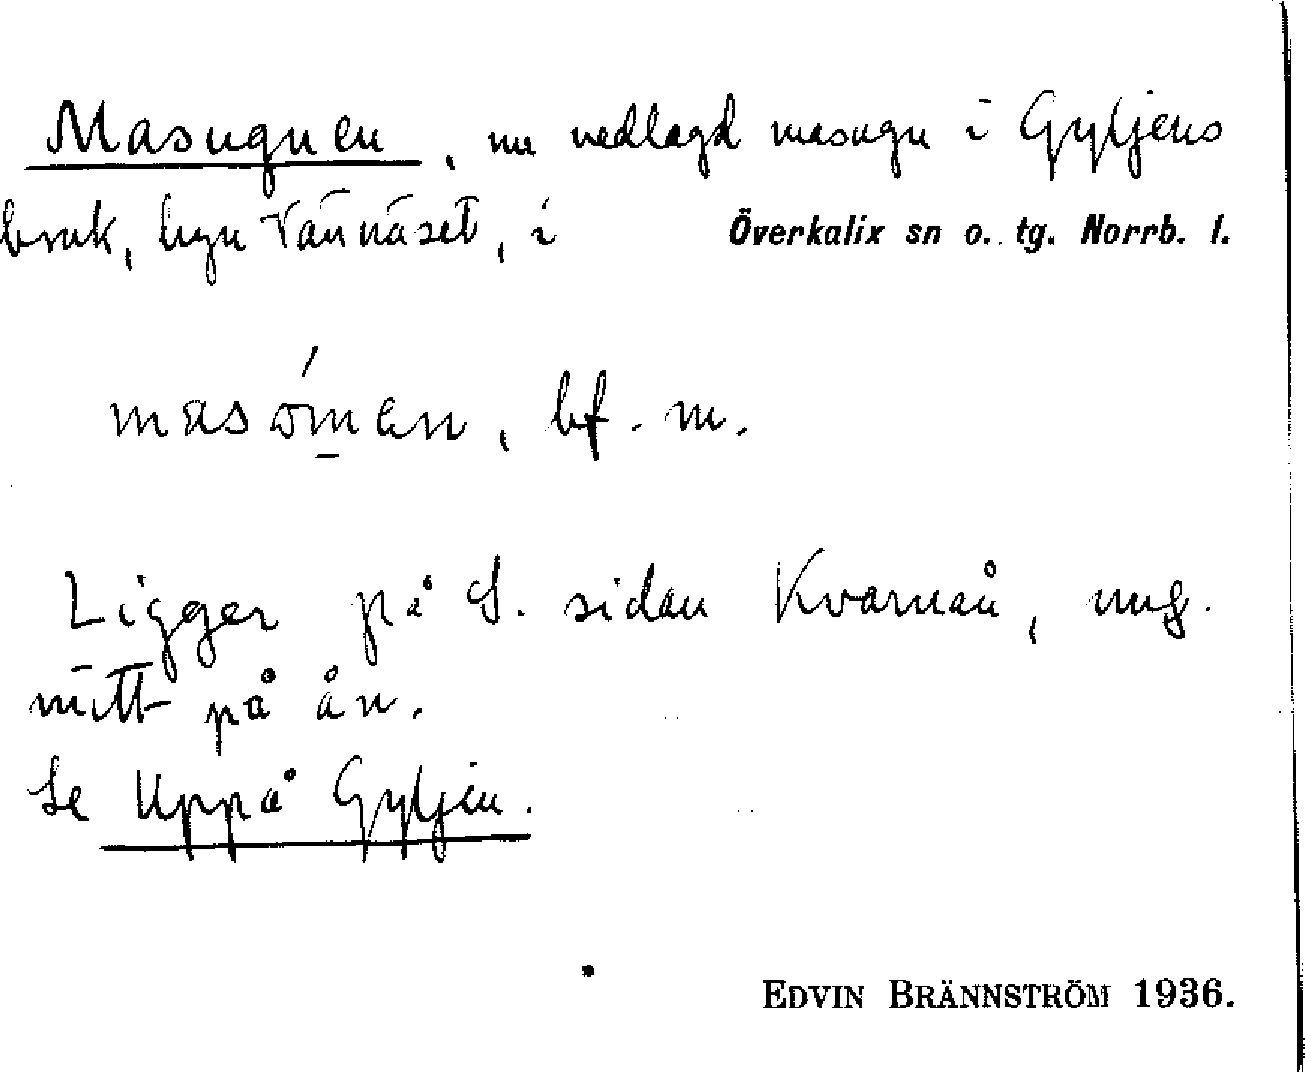 Masugnen, nu nedlagd masugn i Gyljens
bruk, byn Vännäset, i Överkalix sn o. tg. Norrb. l.
masóm̲en, bf. m.
Ligger på S. sidan Kvarnån, ung.
mitt på ån.
Se Uppå Gyljen.
EDVIN BRÄNNSTRÖM 1936.